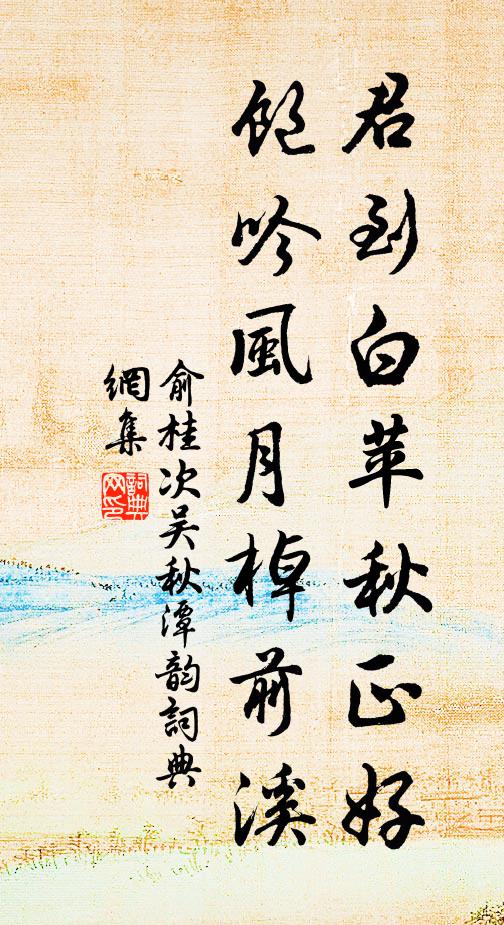 君到白苹秋正好
飽吟風月棹前溪
俞桂次吴秋潭韵詞典
網集
詞典
网印